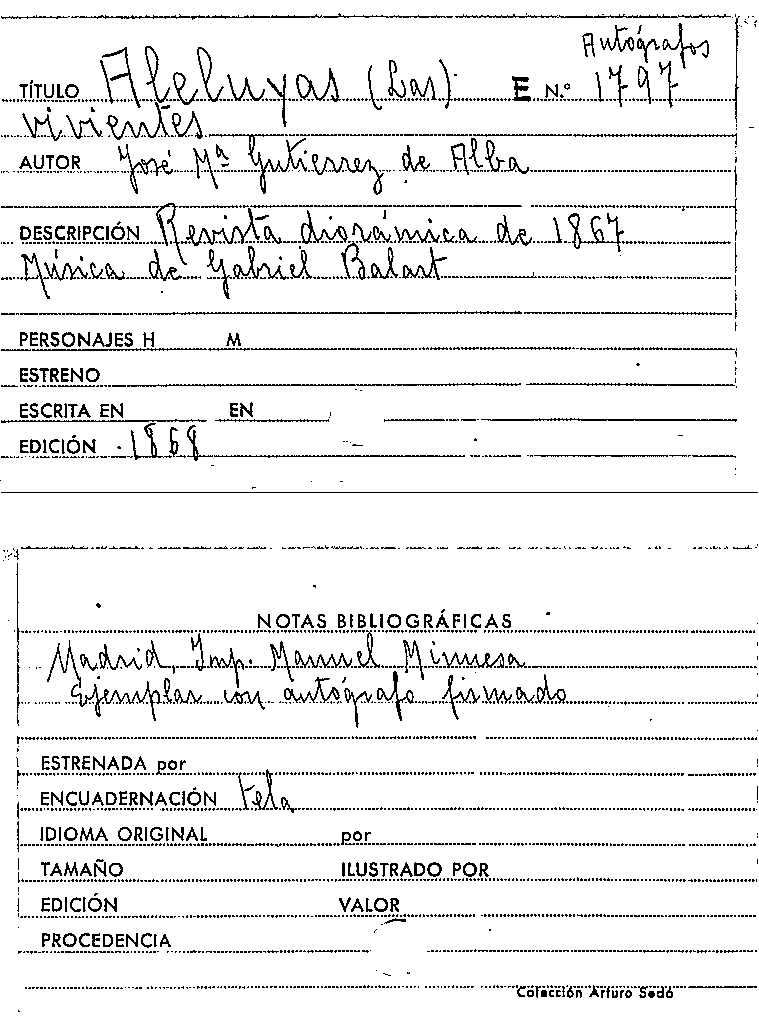 Autógrafos
TÍTULO Aleluyas (Las) E N.º 1797
vivientes
AUTOR José Mª Gutierrez de Alba
DESCRIPCIÓN Revista diorámica de 1867
Música de Gabriel Balart
PERSONAJES H M
ESTRENO
ESCRITA EN EN
EDICIÓN 1868
NOTAS BIBLIOGRÁFICAS
Madrid, Imp. Manuel Minuesa
Ejemplar con autógrafo firmado
ESTRENADA por
ENCUADERNACIÓN tela
IDIOMA ORIGINAL por
TAMAÑO ILUSTRADO POR
EDICIÓN VALOR
PROCEDENCIA
Colección Arturo Sedó